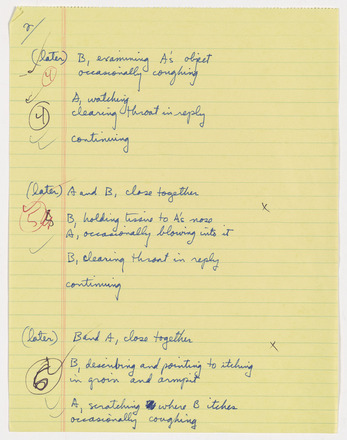 2/
(later) B, examining A's object
4
occasionally coughing
A, watching
4
clearing throat in reply
continuing
(later) A and B, close together
x
5
B, holding tissue to A's nose
A, occasionally blowing into it
B, clearing throat in reply
continuing
(later) B and A, close together
x
6
B, describing and pointing to itching
in groin and armpit
A, scratching where B itches
occasionally coughing